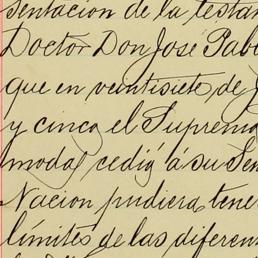 sentacion de la testa
Doctor Don José Pab
que en veintisiete, de
y cinco el Suprem
modal cedió á su Sen
Nacion pudiera tene
límites de las diferen